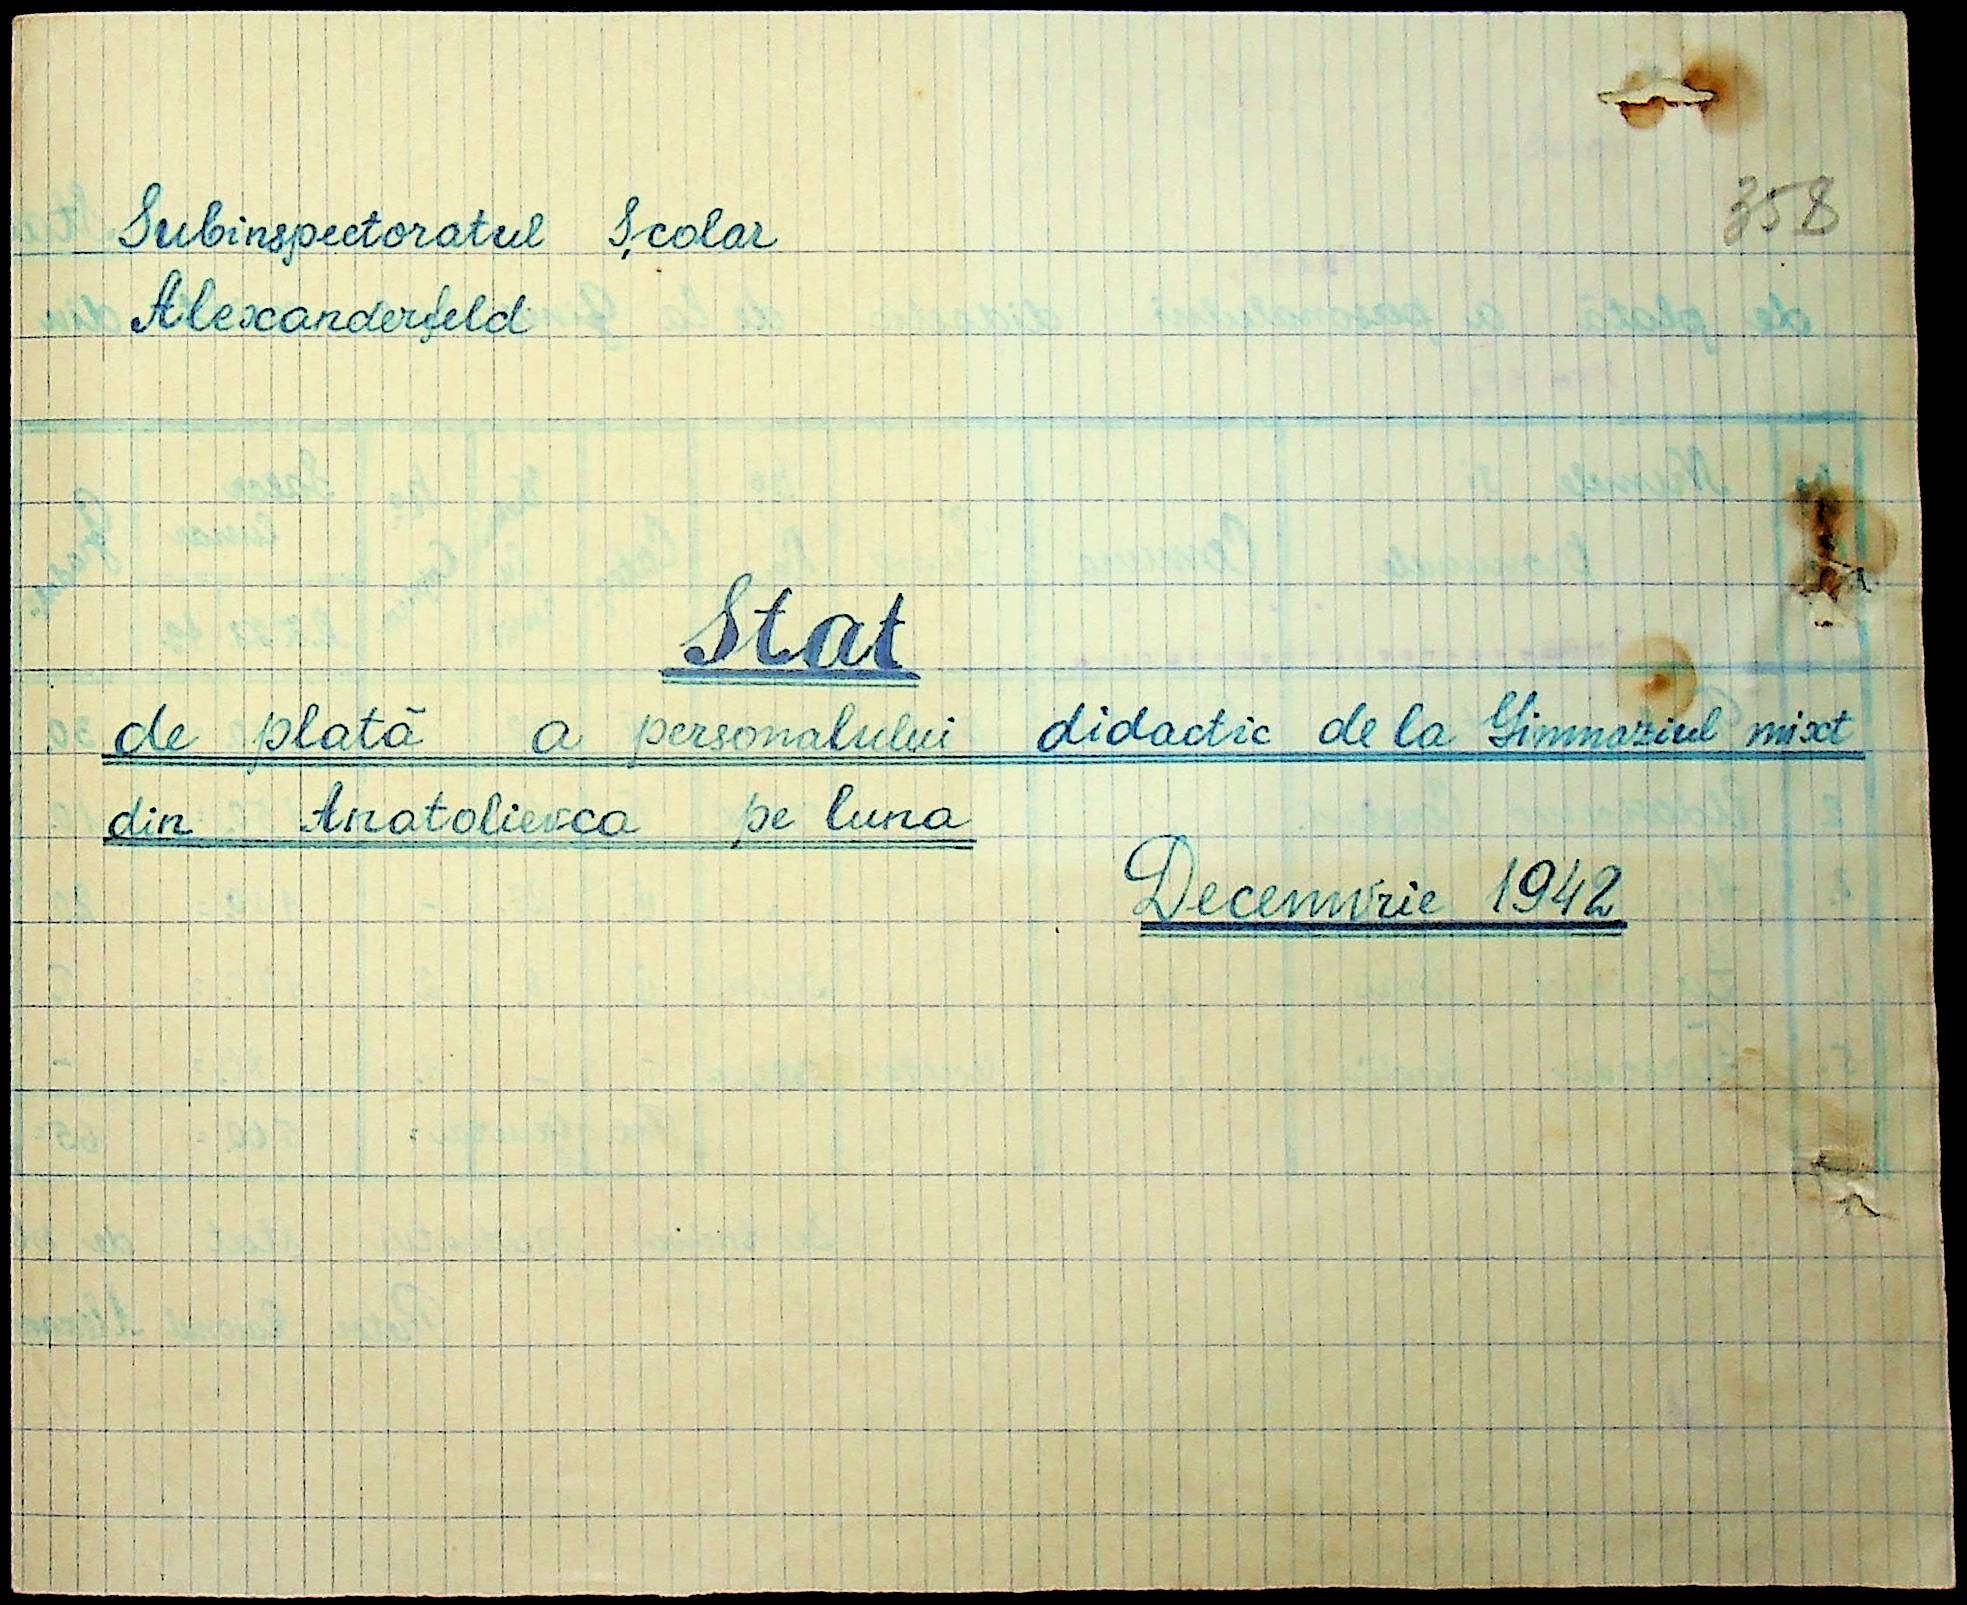 358
Subinspectoratul Școlar
Alexanderfeld
Stat
de plată a personalului didactic de la Gimnaziul mixt
din Anatolievca pe luna
Decemvrie 1942